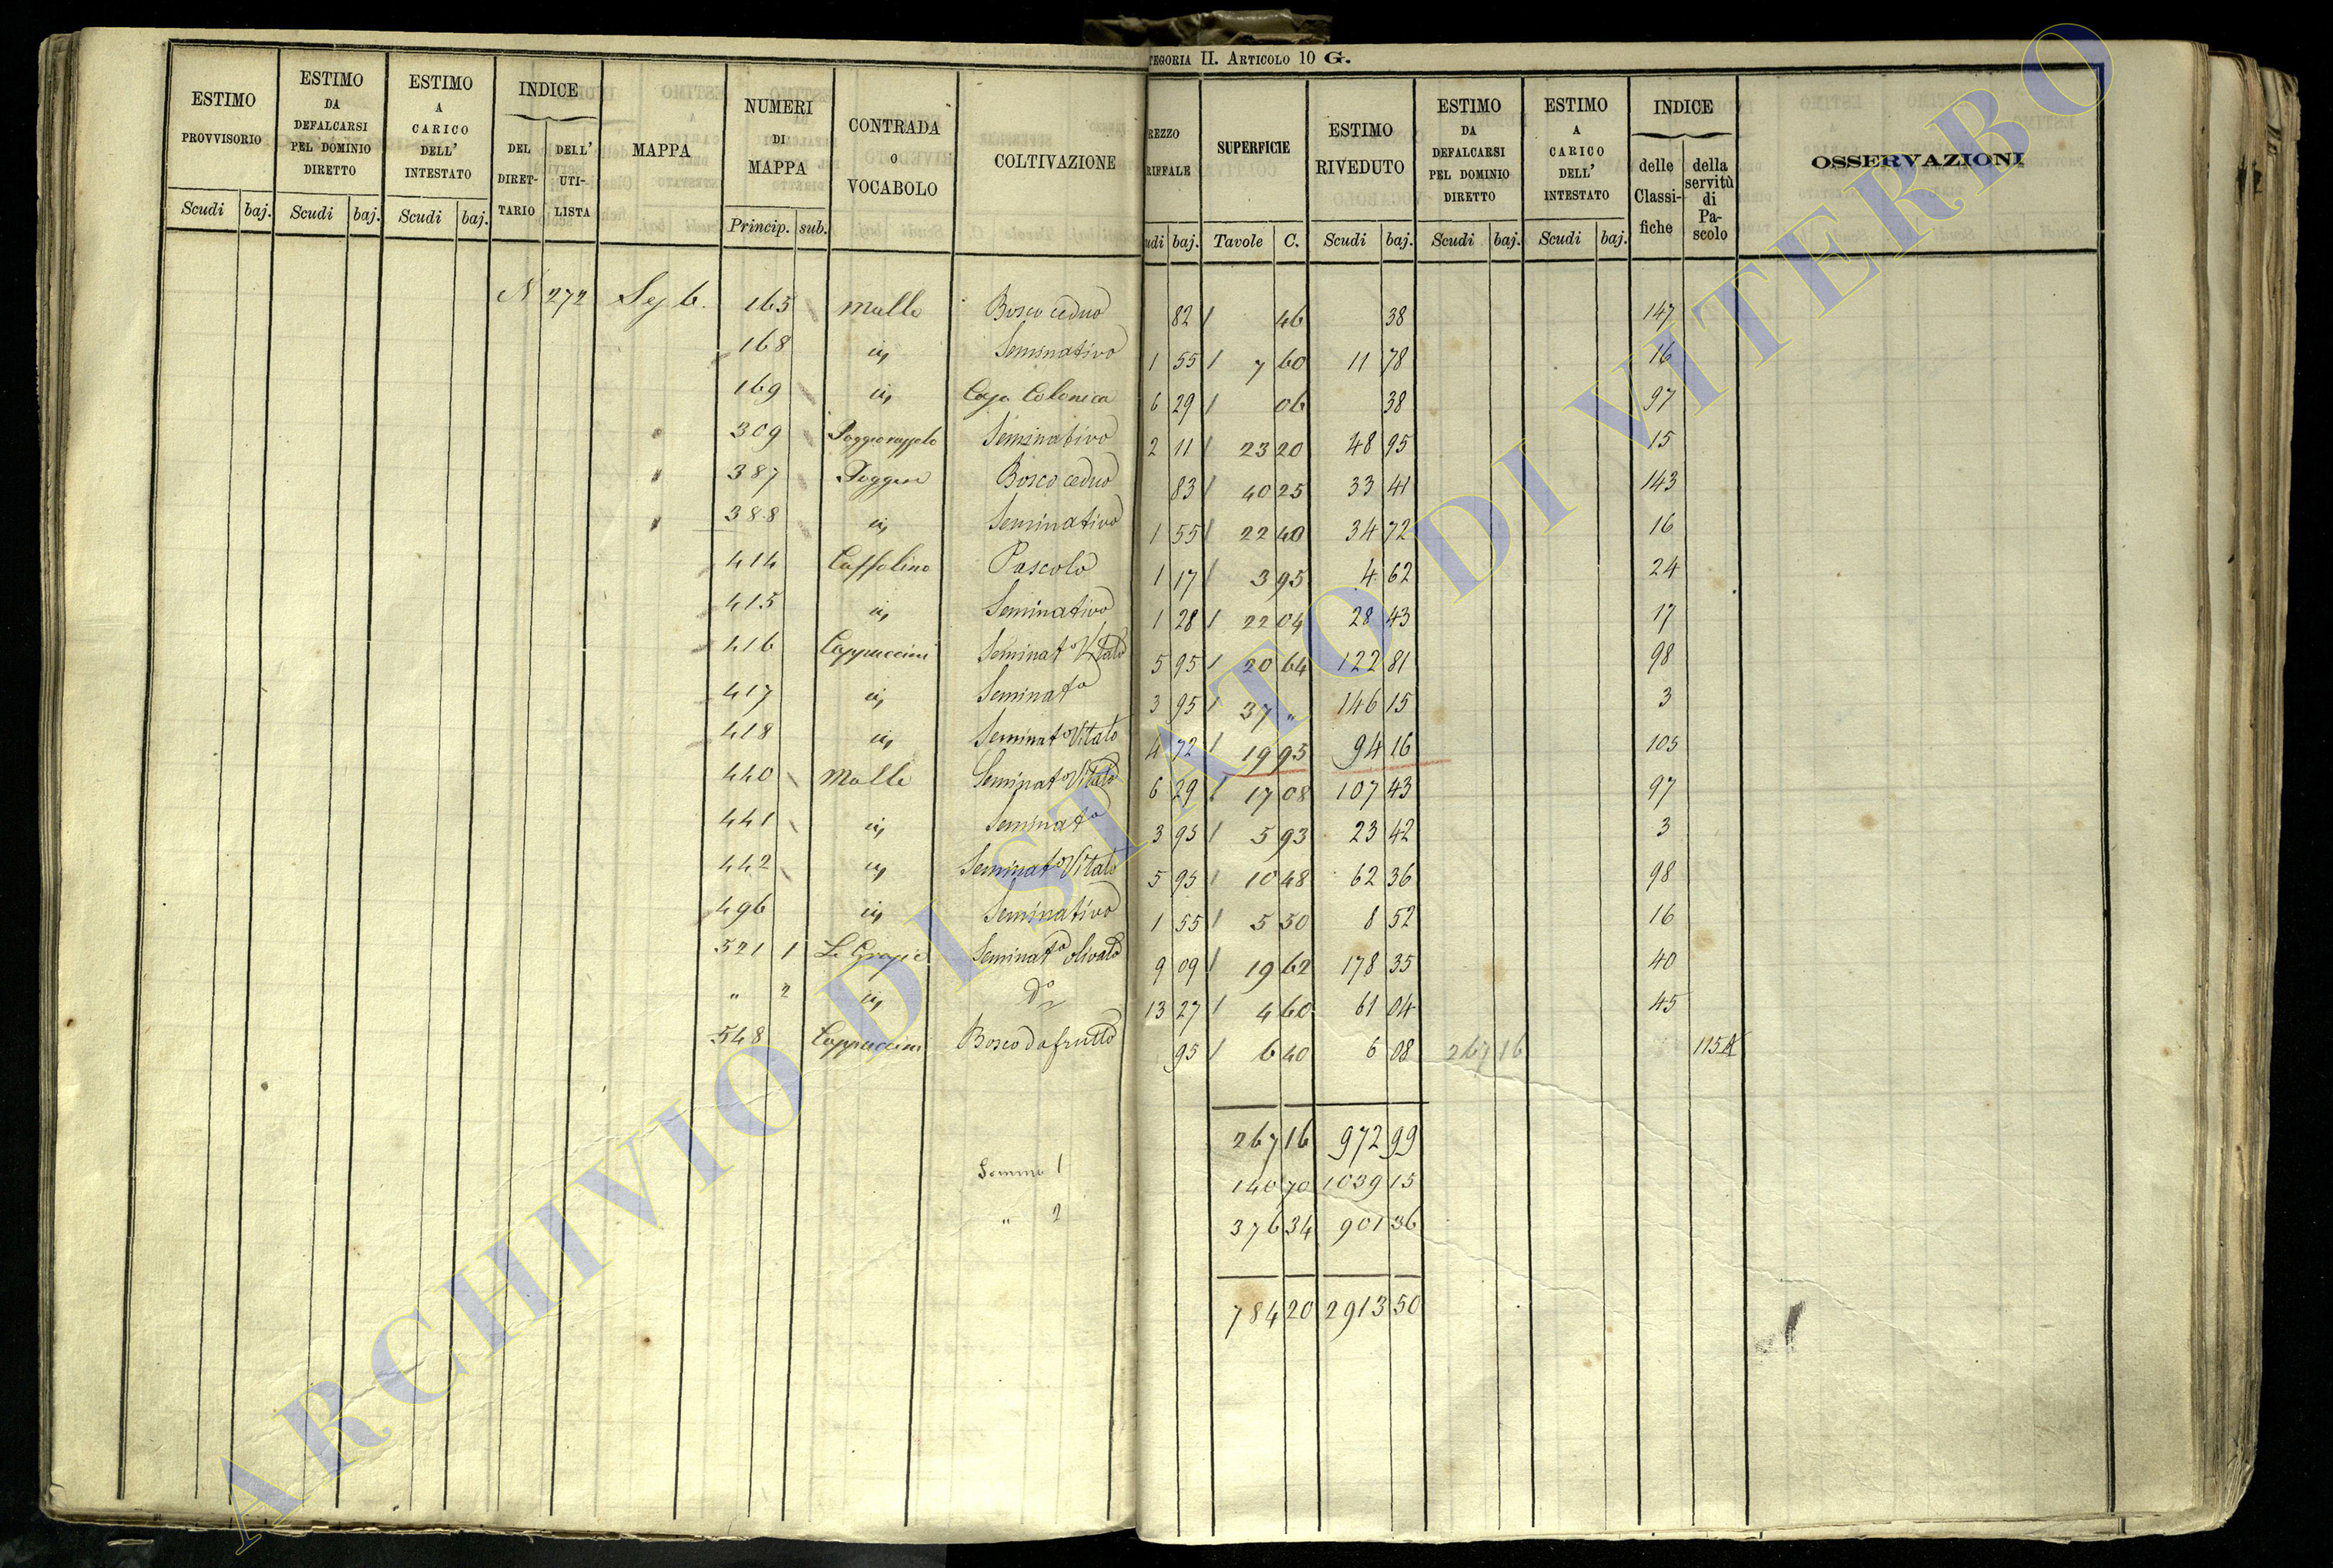 TEGORIA II. ARTICOLO 10 G.
ESTIMO PROVVISORIO Scudi baj.
ESTIMO DA DEFALCARSI PEL DOMINIO DIRETTO Scudi baj.
ESTIMO A CARICO DELL' INTESTATO Scudi baj.
INDICE DEL DIRET-TARIO DELL' UTI-LISTA
MAPPA
NUMERI DI MAPPA Princip. sub.
CONTRADA O VOCABOLO
COLTIVAZIONE
REZZO RIFFALE udi baj.
SUPERFICIE Tavole C.
ESTIMO RIVEDUTO Scudi baj.
ESTIMO DA DEFALCARSI PEL DOMINIO DIRETTO Scudi baj.
ESTIMO A CARICO DELL' INTESTATO Scudi baj.
INDICE delle Classi-fiche della servitù di Pa-scolo
OSSERVAZIONI
N 272 Sez 6. 165 Molle Bosco ceduo 82 / 46 38 147
168 iv, Seminativo 1 55 / 7 60 11 78 16
169 iv, Casa Colonica 6 29 / 06 38 97
" 309 Seminativo 2 11 / 23 20 48 95 15
" 387 Poggere Bosco ceduo 83 / 40 25 33 41 143
" 388 iv, Seminativo 1 55 / 22 40 34 72 16
414 Caffolino Pascolo 1 17 / 3 95 4 62 24
415 iv, Seminativo 1 28 / 22 04 28 43 17
416 Cappuccini Seminato Vitato 5 95 / 20 64 122 81 98
417 iv, Seminato 3 95 / 37 " 146 15 3
418 iv, Seminato Vitato 4 72 / 19 95 94 16 105
440 Molle Seminato Vitato 6 29 / 17 08 107 43 97
441 iv, Seminato 3 95 / 5 93 23 42 3
442 iv, Seminato Vitato 5 95 / 10 48 62 36 98
496 iv, Seminativo 1 55 / 5 50 8 52 16
521 1 Le Grazie Seminato olivato 9 09 / 19 62 178 35 40
" 2 iv, do 13 27 / 4 60 61 04 45
548 Cappuccini Bosco da frutto 95 / 6 40 6 08 267 16 115
267 16 972 99
Somma 1 140 70 1039 15
" 2 376 34 901 36
784 20 2913 50
ARCHIVIO DI STATO DI VITERBO